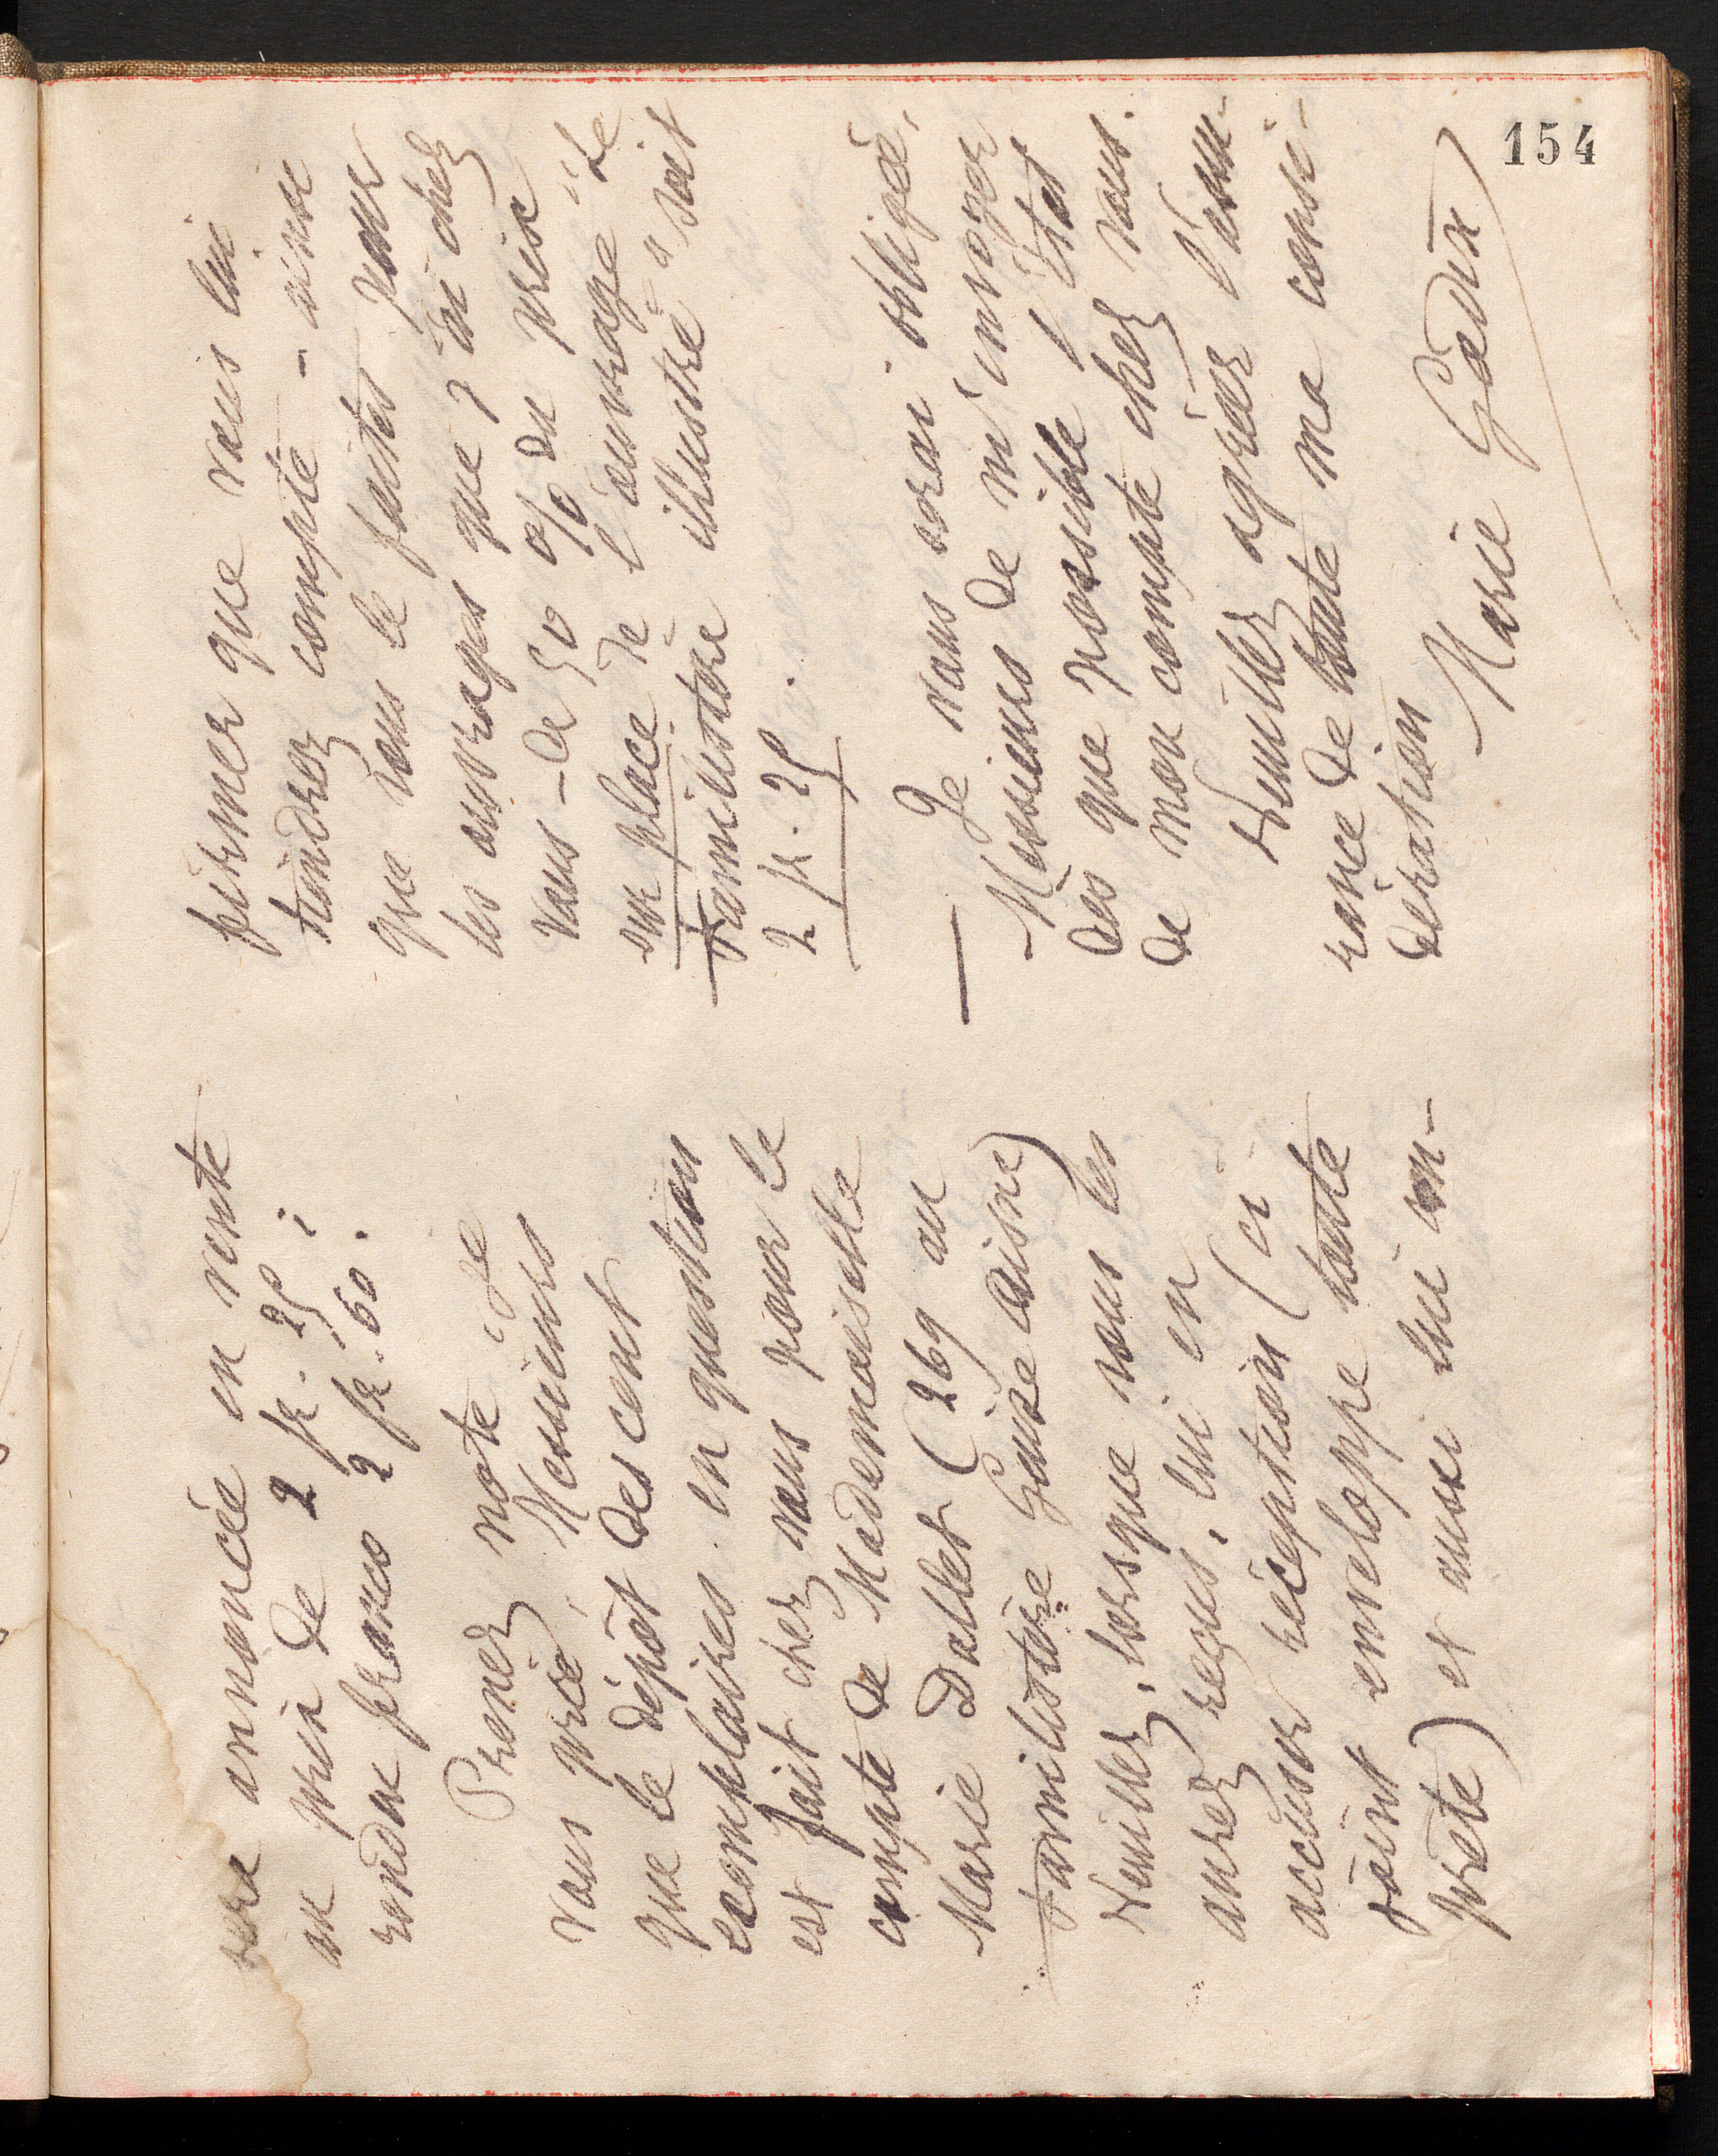 154
sera annoncée en vente
au prix de 2 fr. 25 ;
rendue franco 2 fr. 60.
Prenez note, je
vous prie, Messieurs
que le dépôt des cent
exemplaires en question
est fait chez vous pour le
compte de Mademoiselle
Marie Dallet (269 au
Familistère Guise Aisne)
Veuillez, lorsque vous les
aurez reçus, lui en
accuser réception (ci-
joint enveloppe toute
prête) et aussi lui con-
firmer que vous lui
tiendrez compte - ainsi
que vous le faites pour
les ouvrages que j'ai chez
vous - de 50 % du prix
sur place de l'ouvrage "Le
Familistère illustré" soit
2 fr. 25.
Je vous serai obligée,
Messieurs de m'envoyer
dès que possible l'état
de mon compte chez vous.
Veuillez agréer l'assu-
rance de toute ma consi-
dération
Marie Godin